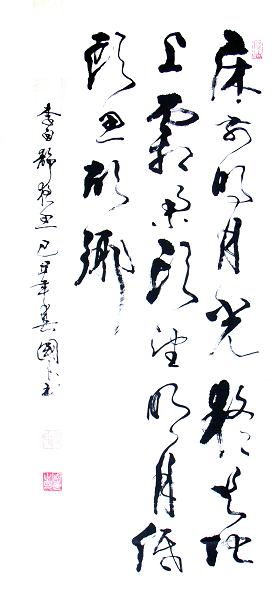 床前明月光疑是地
上霜举头望明月低
头思故乡
李白静夜思 己丑年 国 书